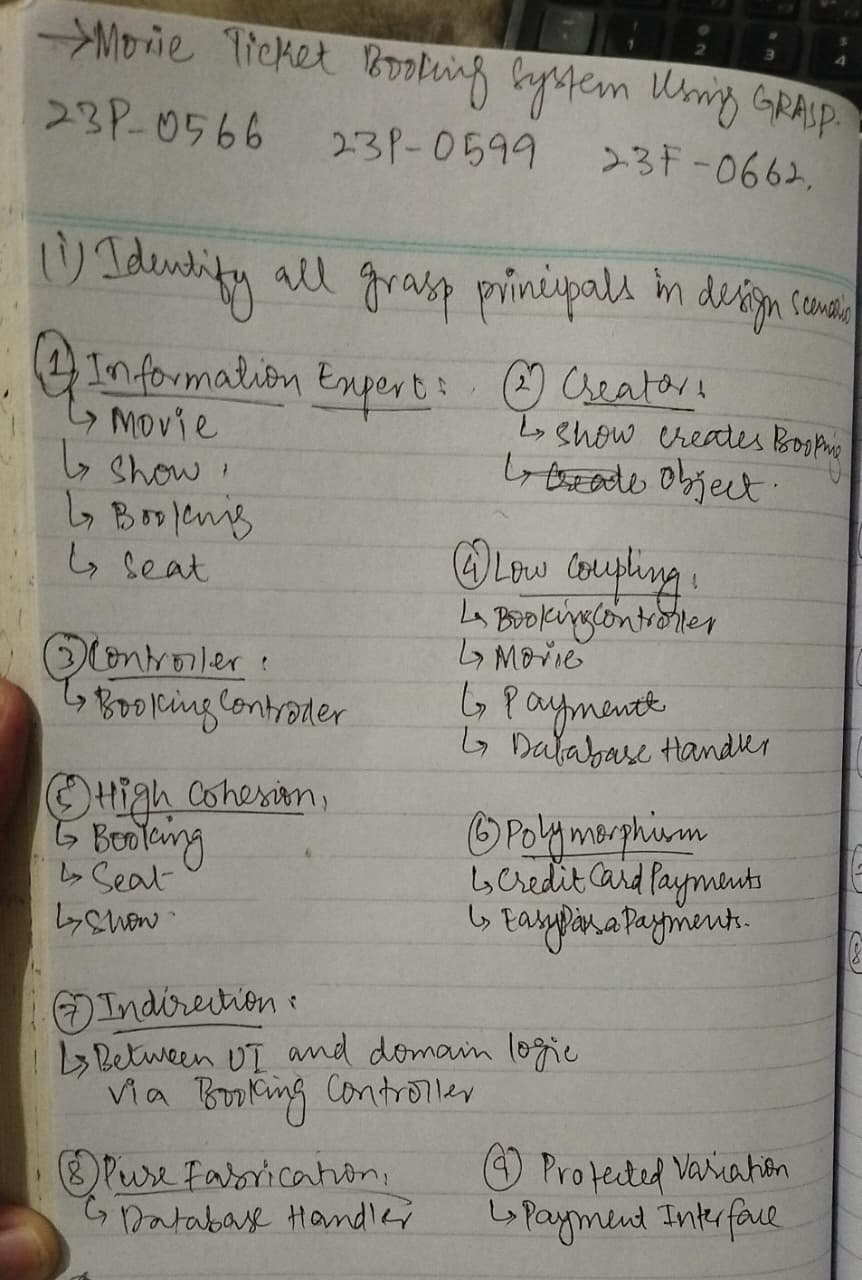 →Movie Ticket Booking System Using GRASP.
23P-0566 23P-0599 23F-0662.
(i) Identify all grasp principals in design scenario
① Information Expert:
↳ Movie
↳ Show
↳ Booking
↳ Seat
② Creator:
↳ Show creates Booking
↳ Create Object.
③ Controller:
↳ BookingController
④ Low Coupling:
↳ BookingController
↳ Movie
↳ Payment
↳ Database Handler
⑤ High Cohesion,
↳ Booking
↳ Seat
↳ Show
⑥ Polymorphism
↳ Credit Card Payments
↳ EasyPaisa Payments.
⑦ Indirection:
↳ Between UI and domain logic
via Booking Controller
⑧ Pure Fabrication,
↳ Database Handler
⑨ Protected Variation
↳ Payment Interface